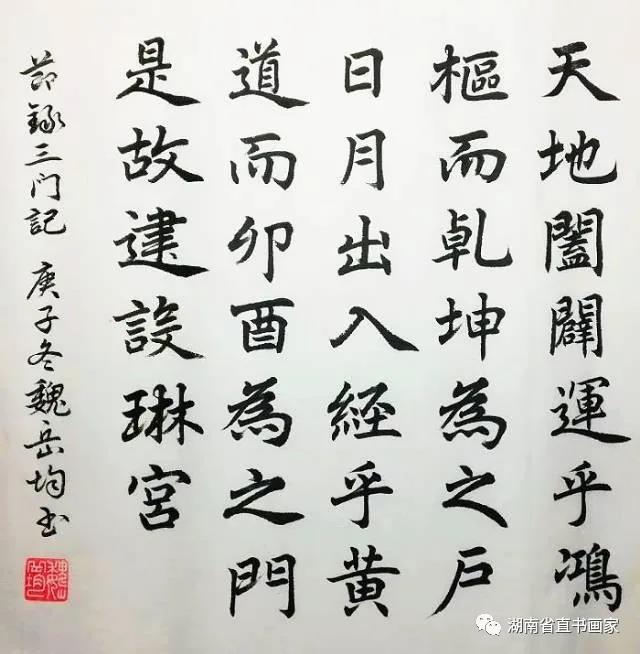 天地闔闢運乎鴻
樞而乹坤為之戶
日月出入經乎黄
道而卯酉為之門
是故建設琳宮
節錄三门記 庚子冬魏岳均书
湖南省直书画家